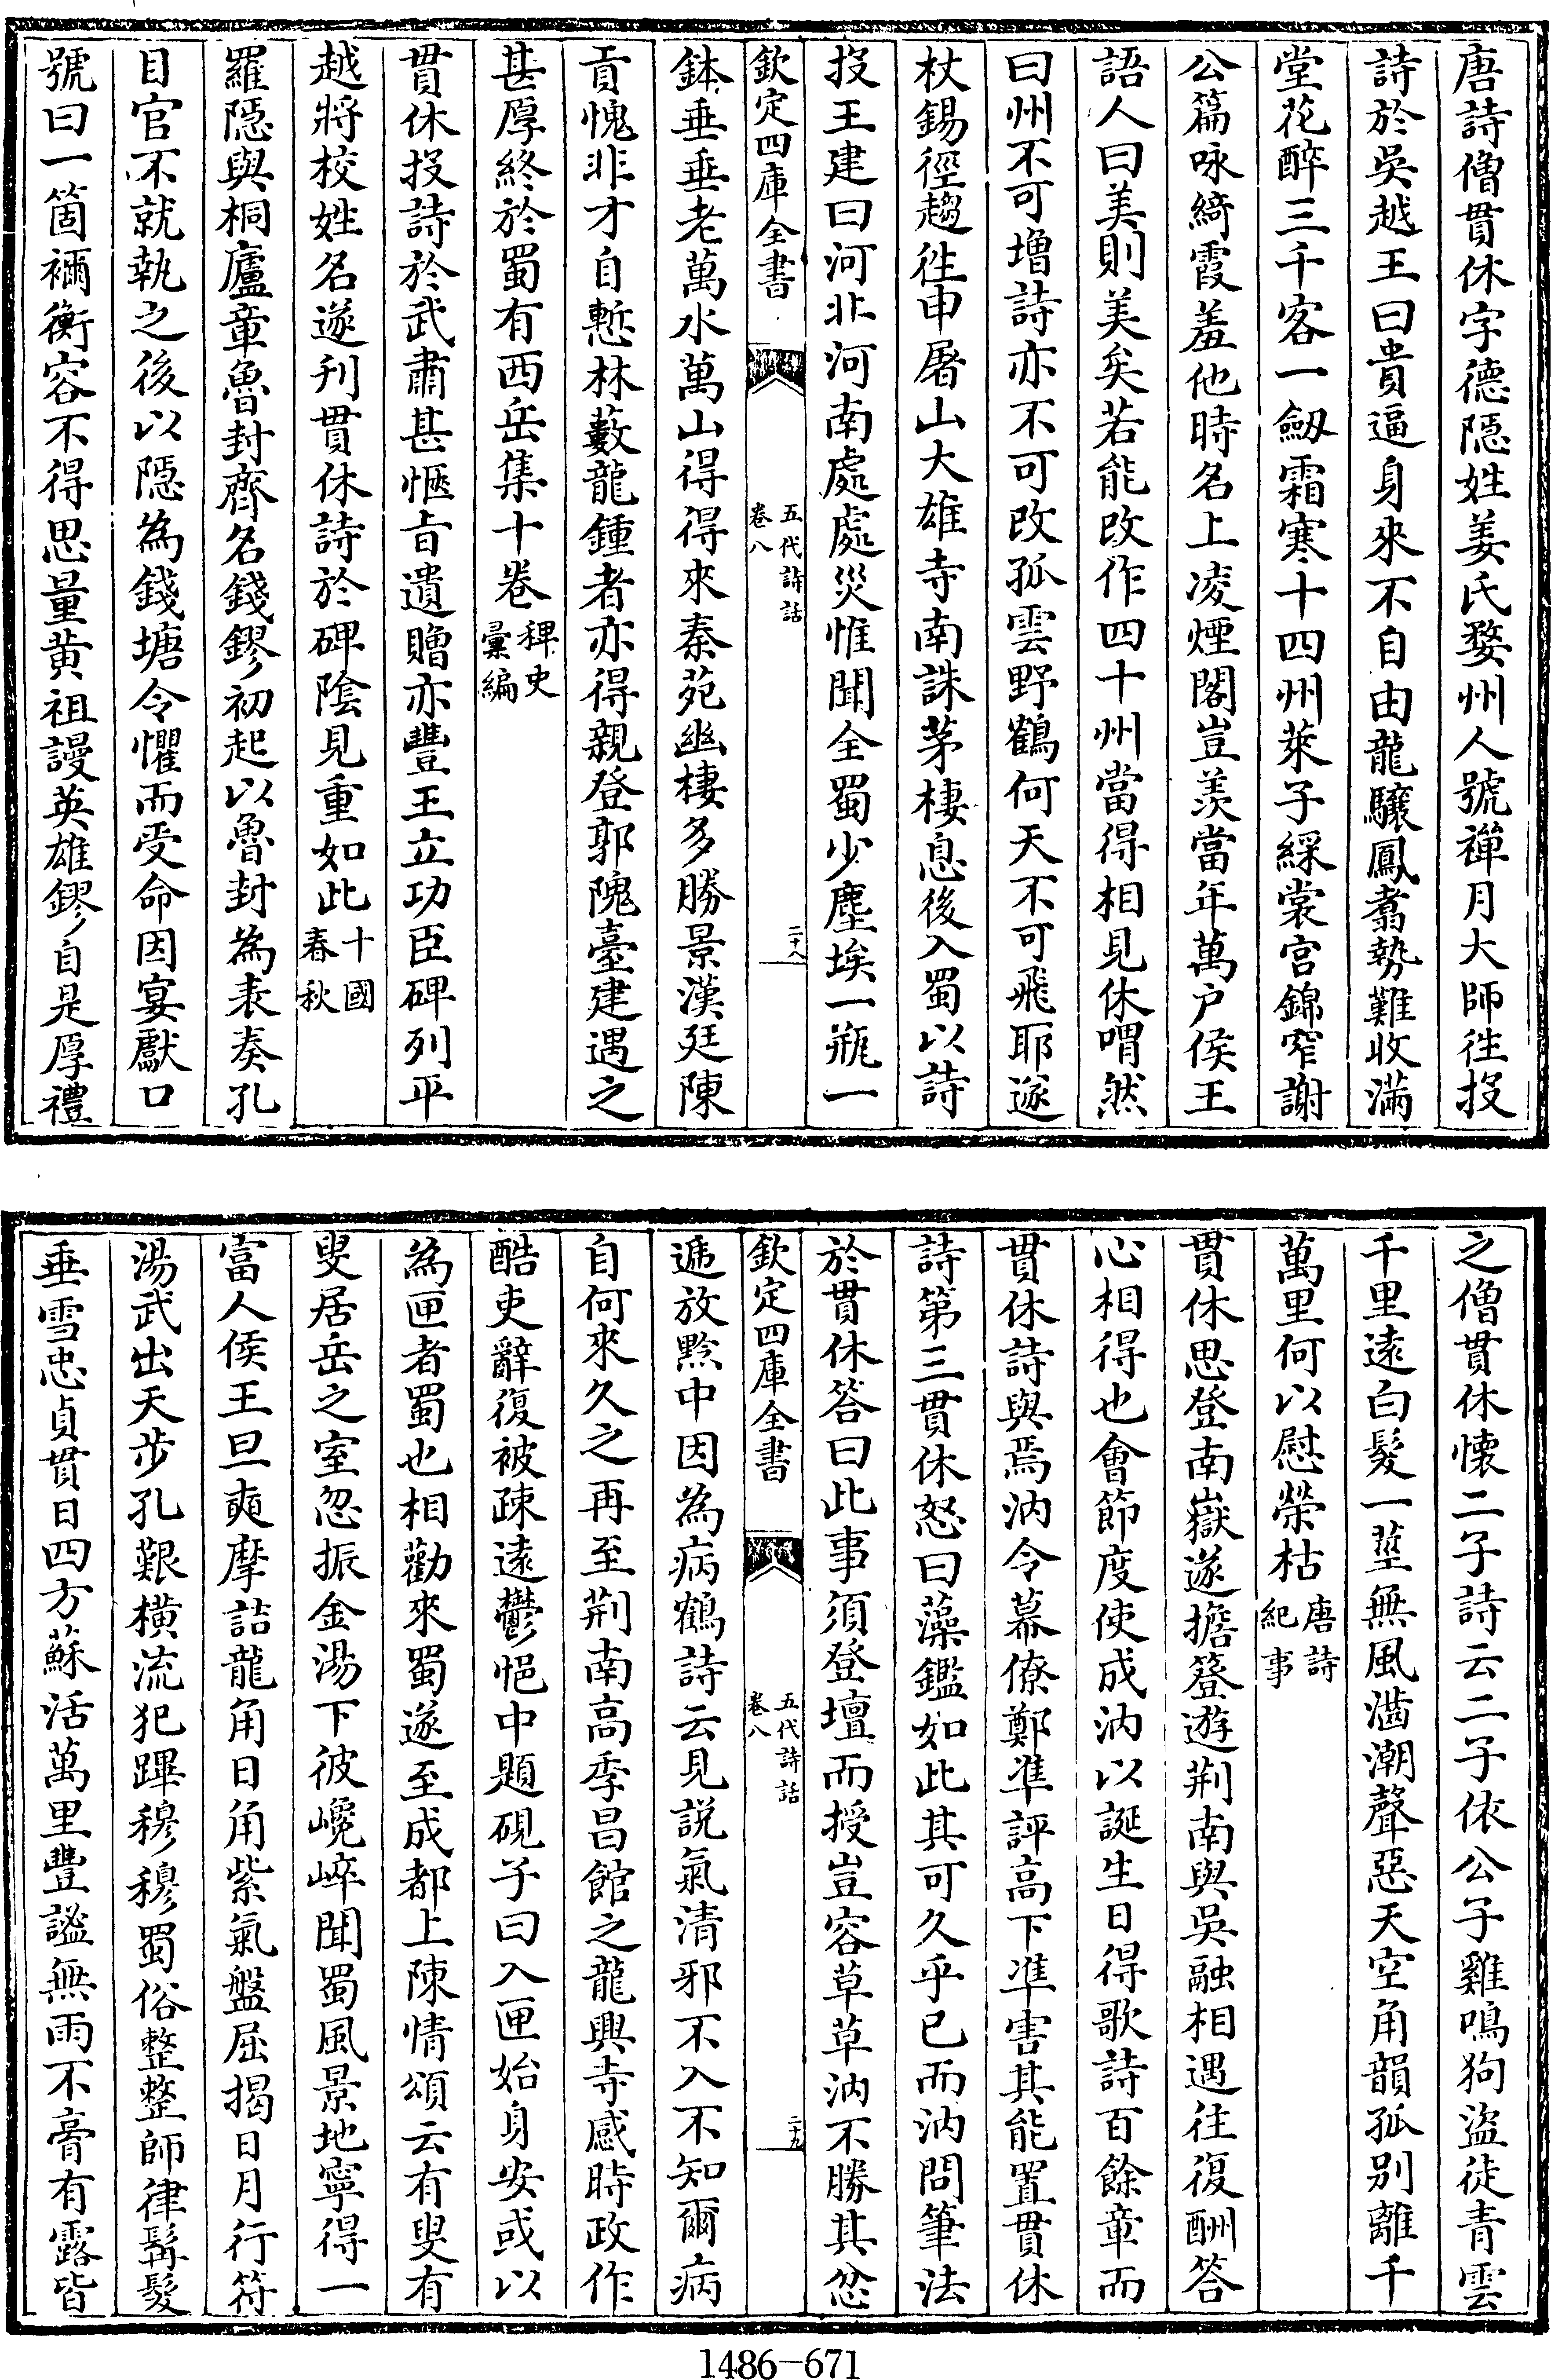 唐詩僧貫休字德隠姓姜氏婺州人號禪月大師徃投
詩於吳越王曰貴逼身來不自由龍驤鳳翥勢難收滿
堂花醉三千客一劔霜寒十四州萊子綵裳宫錦窄謝
公篇咏綺霞羞他時名上凌煙閣豈羨當年萬户侯王
語人曰美則美矣若能改作四十州當得相見休喟然
曰州不可増詩亦不可改孤雲野鶴何天不可飛耶遂
杖錫徑趨徃申屠山大雄寺南誅茅棲息後入蜀以詩
投王建曰河北河南處處災惟聞全蜀少塵埃一瓶一
欽定四庫全書
五代詩話
卷八
二十八
鉢垂垂老萬水萬山得得來秦苑幽棲多勝景漢廷陳
貢愧非才自慙林藪龍鍾者亦得親登郭隗臺建遇之
甚厚終於蜀有西岳集十卷稗史彚編
貫休投詩於武肅甚愜㫖遺贈亦豐王立功臣碑列平
越將校姓名遂刋貫休詩於碑隂見重如此十國春秋
羅隠與桐廬章魯封齊名錢鏐初起以魯封為表奏孔
目官不就執之後以隠為錢塘令懼而受命因宴獻口
號曰一箇禰衡容不得思量黄祖謾英雄鏐自是厚禮
之僧貫休懐二子詩云二子依公子雞鳴狗盗徒青雲
千里逺白髮一莖無風濇潮聲惡天空角韻孤别離千
萬里何以慰榮枯唐詩紀事
貫休思登南嶽遂擔簦遊荆南與吳融相遇往復酬答
心相得也會節度使成汭以誕生日得歌詩百餘章而
貫休詩與焉汭令幕僚鄭凖評高下凖害其能置貫休
詩第三貫休怒曰藻鑑如此其可久乎已而汭問筆法
於貫休答曰此事須登壇而授豈容草草汭不勝其忿
欽定四庫全書
五代詩話
卷八
二十九
遞放黔中因為病鶴詩云見説氣清邪不入不知爾病
自何來久之再至荆南高季昌館之龍興寺感時政作
酷吏辭復被疎逺鬱悒中題硯子曰入匣始身安或以
為匣者蜀也相勸來蜀遂至成都上陳情頌云有叟有
叟居岳之室忽振金湯下彼巉崪聞蜀風景地寧得一
富人侯王旦奭摩詰龍角日角紫氣盤屈揭日月行符
湯武出天步孔艱横流犯蹕穆穆蜀俗整整師律髯髮
垂雪忠貞貫日四方蘇活萬里豐謐無雨不膏有露皆
1486—671